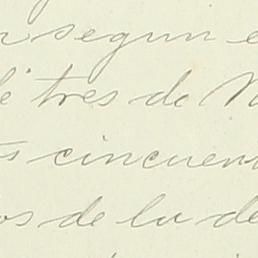 segun
tres de
cincuen
os de la de